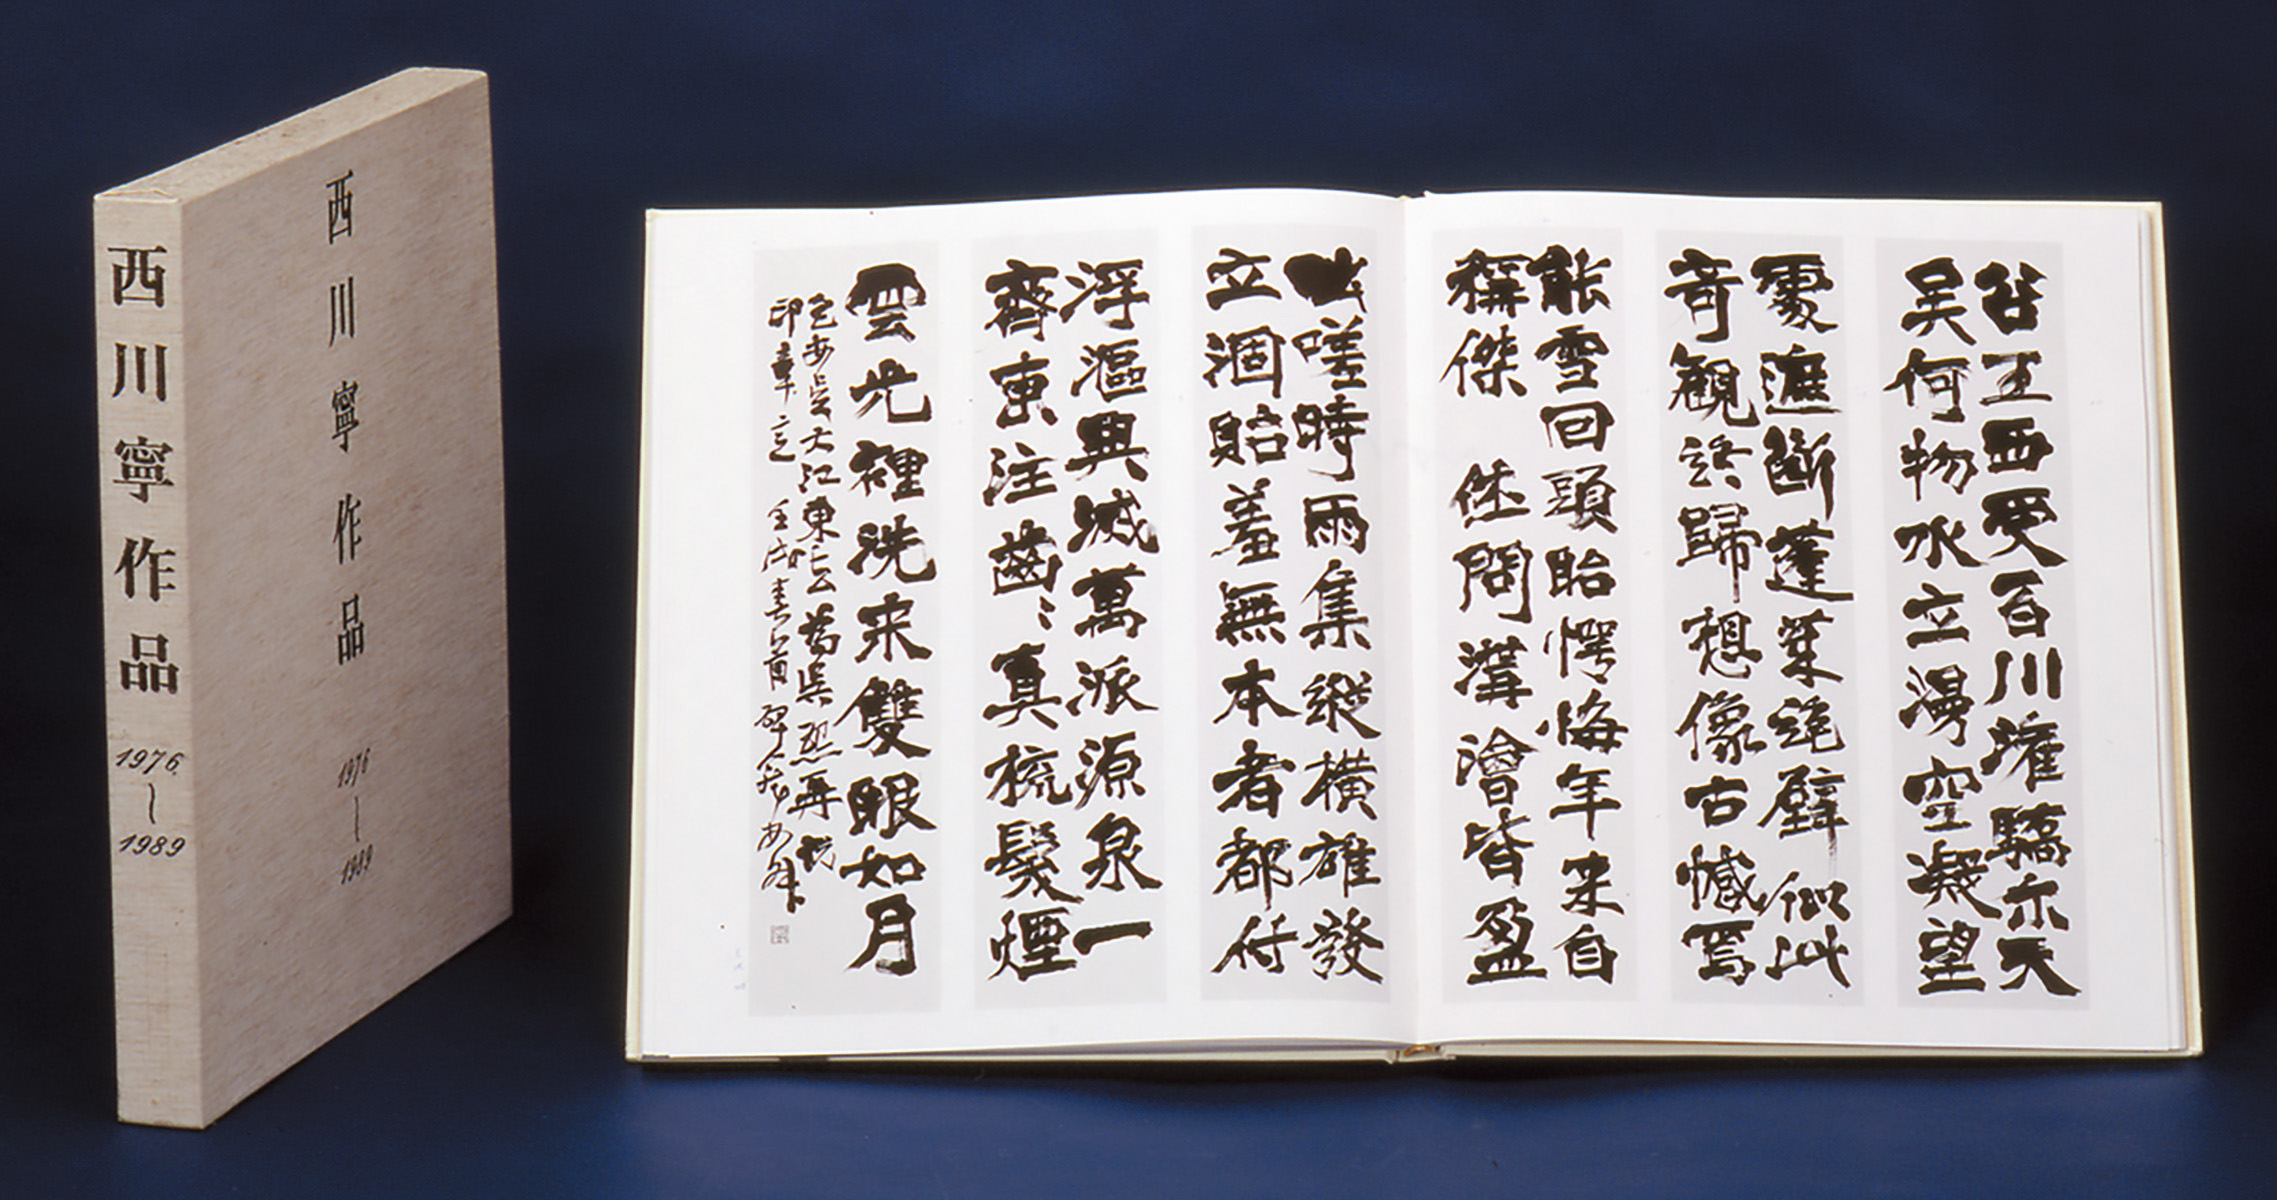 西川寧作品
1976
〜
1989
西川寧作品
1976
〜
1989
谷王西受百川灌驕亦天
吴何物水立漫空凝望
處進斷蓬萊絶壁似此
奇觀終歸想像古憾焉
能雪回頭眙愕悔年来自
稱傑 休問溝澮皆盈
嗟時雨集縱橫雄發
立涸貽羞無本者都付
浮漚興滅萬派源泉一
齊東注齒〻真梳鬟煙
雲光裡洗来雙眼如月
大江東